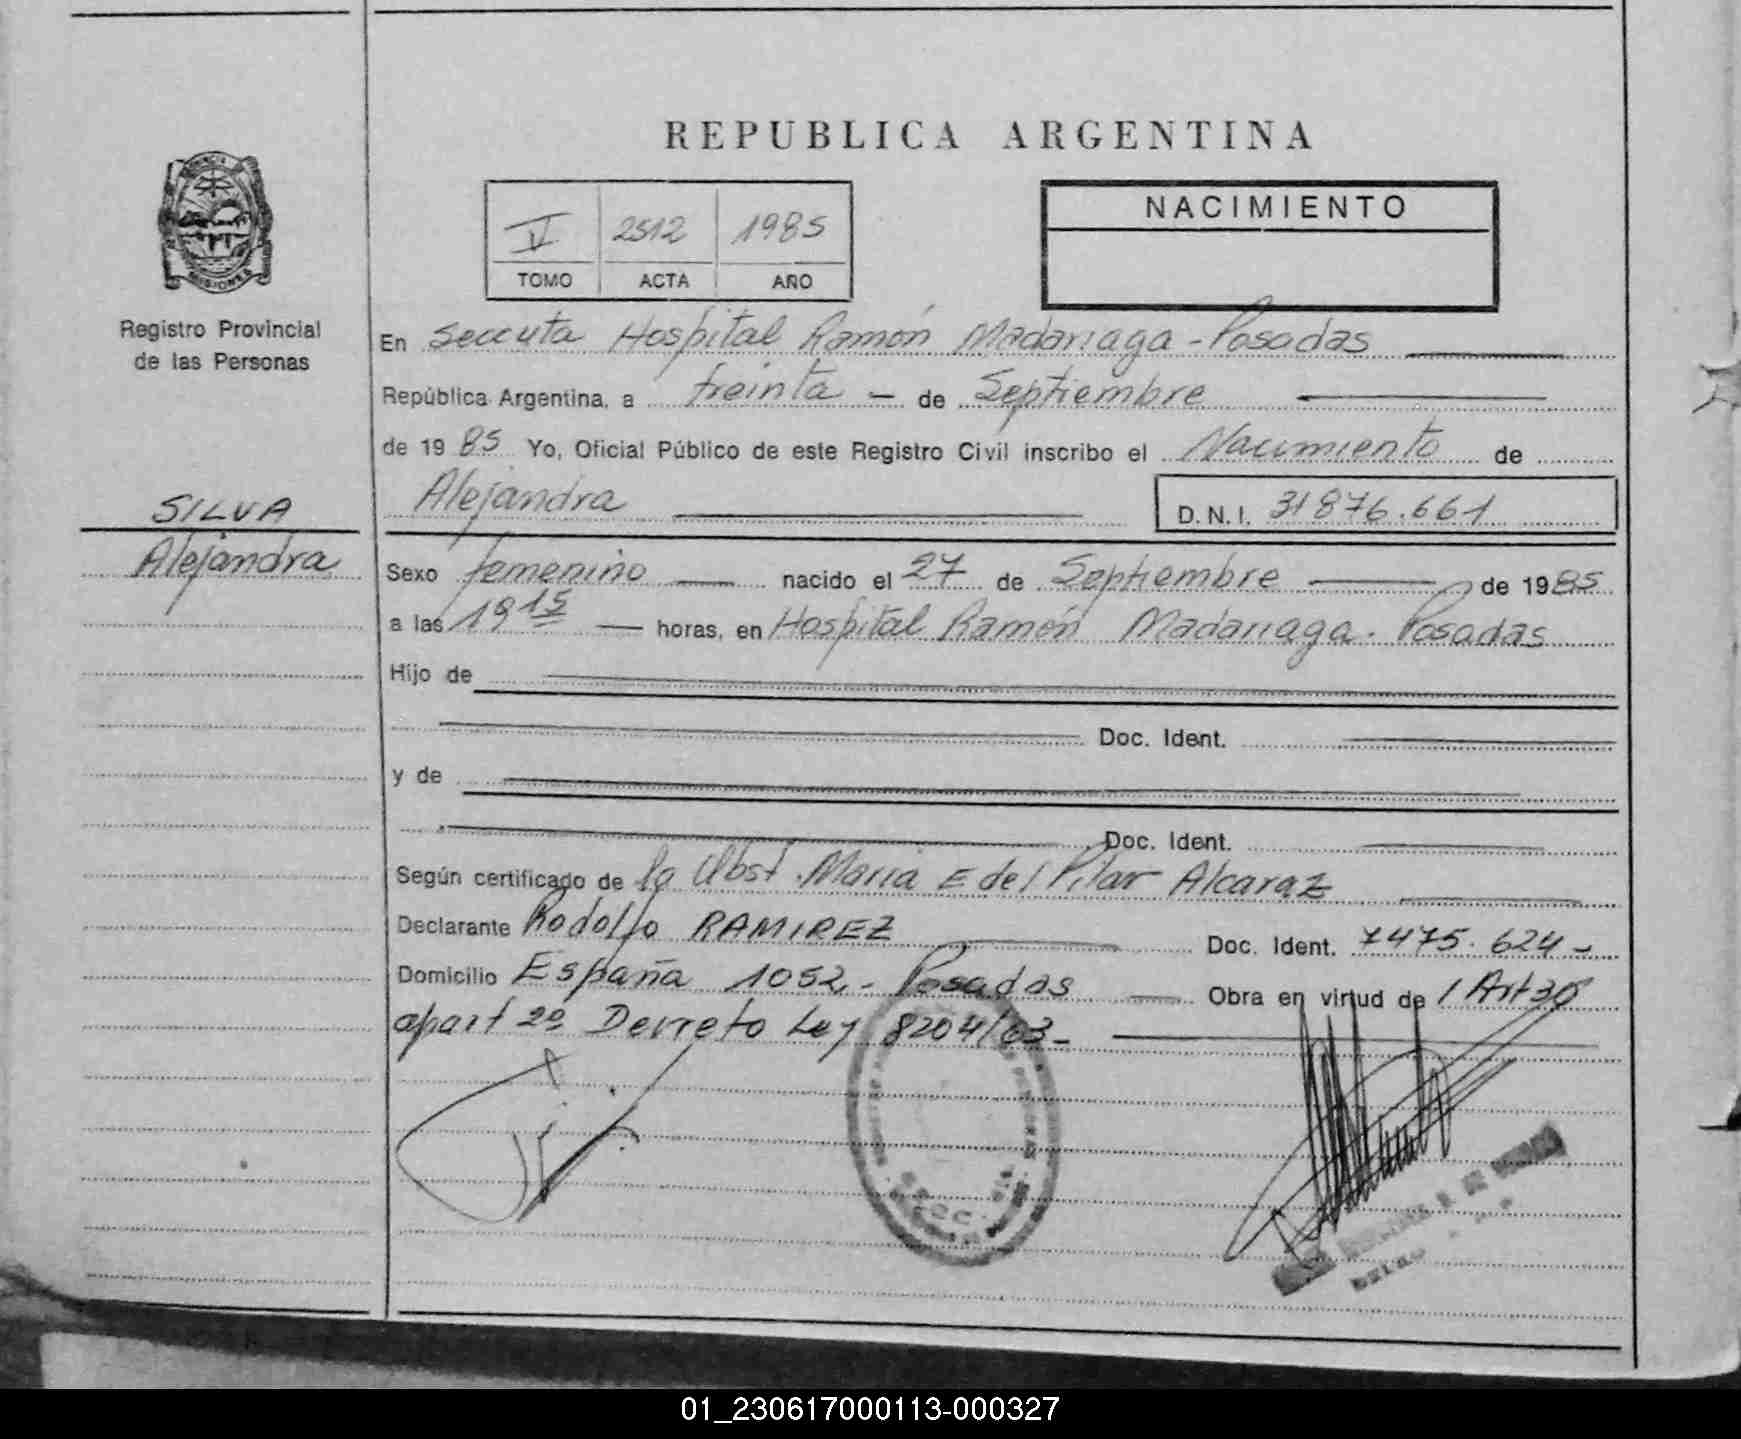 REPUBLICA ARGENTINA
PROVINCIA
MISIONES
Registro Provincial
de las Personas
V 2512 1985
TOMO ACTA AÑO
NACIMIENTO
En Seccuta Hospital Ramón Madariaga - Posadas
República Argentina, a treinta - de Septiembre
de 1985 Yo, Oficial Público de este Registro Civil inscribo el Nacimiento de
Alejandra D.N.I. 31876.661
SILVA
Alejandra
Sexo femenino nacido el 27 de Septiembre de 1985
a las 19 15 horas, en Hospital Ramón Madariaga - Posadas
Hijo de
Doc. Ident.
y de
Doc. Ident.
Según certificado de la Obst. Maria E del Pilar Alcaraz
Declarante Rodolfo RAMIREZ Doc. Ident. 7475.624-
Domicilio España 1052 - Posadas Obra en virtud de l Art 30
apart 2º Decreto Ley 8204/63-
01_230617000113-000327